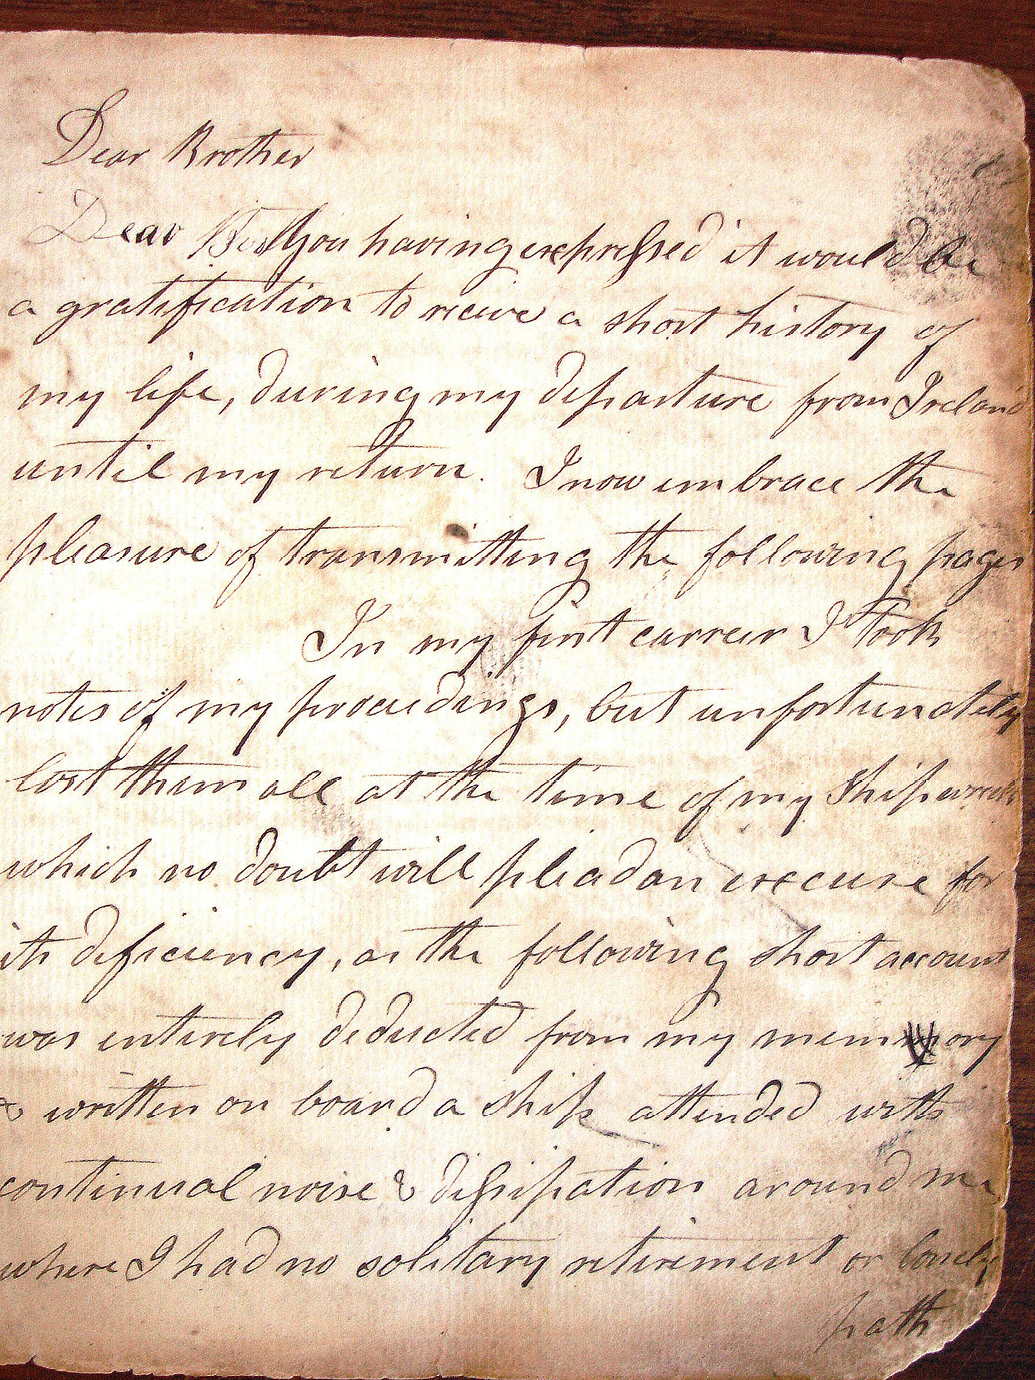 Dear Brother
Dear You having expressed it would be
a gratification to receive a short history of
my life, during my departure from Ireland
until my return. I now embrace the
pleasure of transmitting the following pages
In my first carreer I took
notes of my proceedings, but unfortunately
lost them all at the time of my Shipwreck
which no doubt will plead an excuse for
its deficiency, as the following short account
was entirely deducted from my memory
& written on board a Ship attended with
continual noise & dissipation around me
where I had no solitary retirement or lonely
path